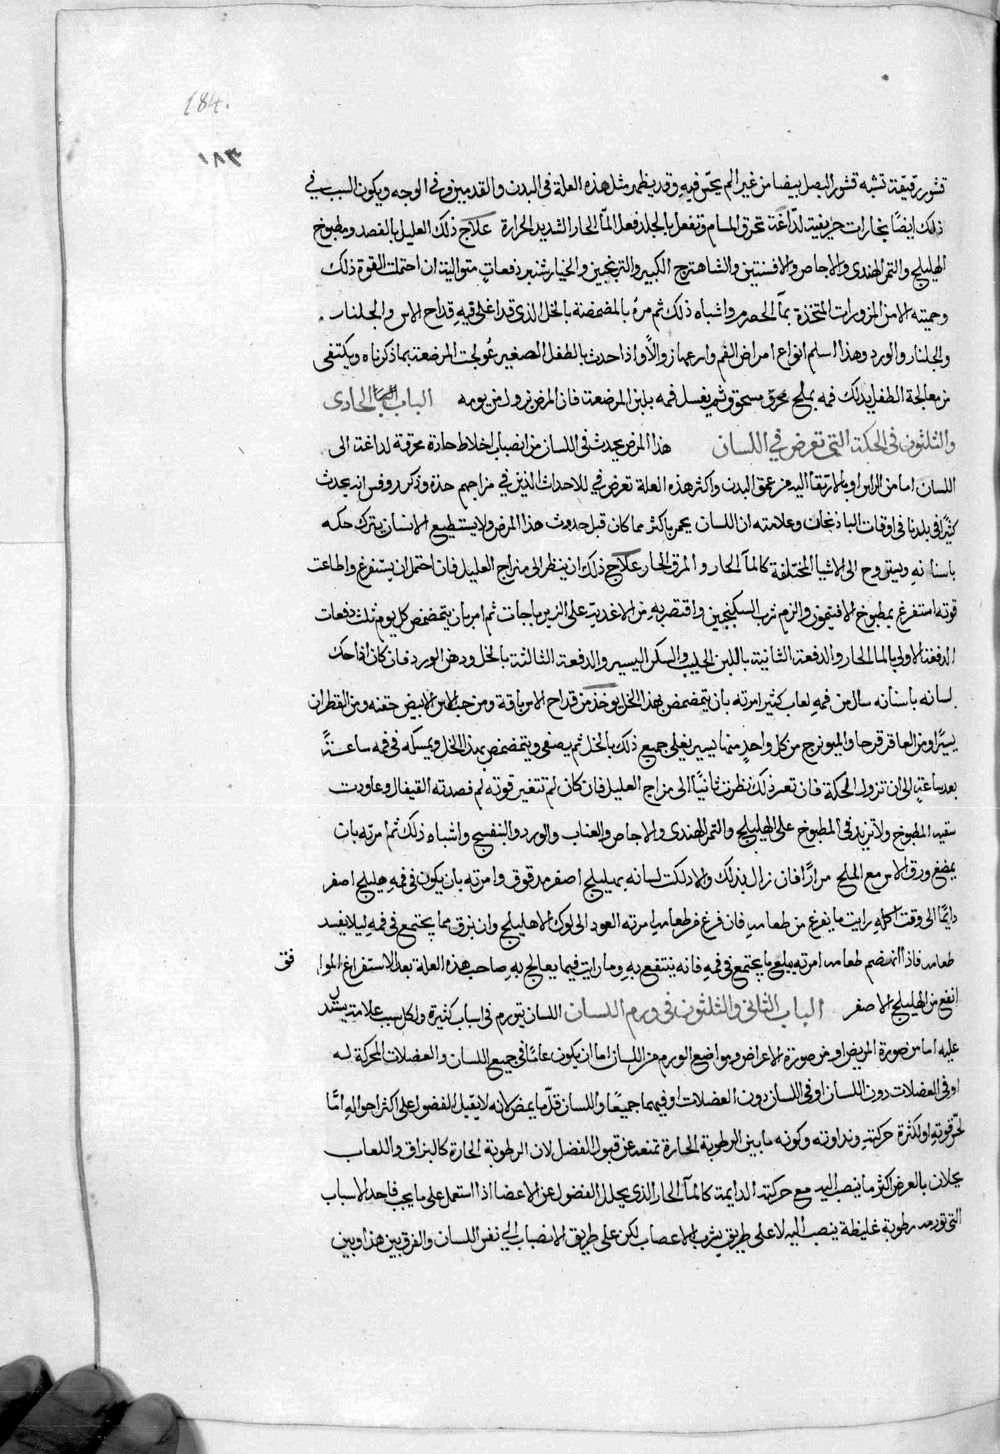 184.
١٨٣
قشور رقيقة تشبه قشور البصل بيضا من غير الم يحس فيه وقد يظهر مثل هذه العلة فى البدن والقدمين وفى الوجه ويكون السبب فى
ذلك ايضًا بخارات حريفية لذاعة تحرق المسام وتفعل بالجلد فعل المآ الحار الشديد الحرارة علاج ذلك العليل بالفصد ومطبوخ
الهليلج والتمر الهندى والاجاص والافسنتين والشاهترج الكبير والترنجبين والخيارشنبر دفعات متوالية ان احتملت القوة ذلك
وحميته الا من المزورات المتخذة بمآ الحصرم واشباه ذلك ثم مره بالمضمضة بالخل الذى قد اغلى فيه قداح الاس والجلنار .
والجلنار والورد وهذا اسلم انواع امراض الفم واسرعها زوالًا واذا حدث بالطفل الصغير عُولجت المرضعة بما ذكرناه ويكتفى
من معالجة الطفل بدلك فمه بملح محرق مسحوق ثم يغسل فمه بلبن المرضعة فان المرض يزول من يومه الباب الحادى
والثلثون فى الحكة التى تعرض فى اللسان هذا المرض يحدث فى اللسان من انصباب اخلاط حادة محرقة لداغة الى
اللسان اما من الراس او بالارتقا اليه من عمق البدن واكثر هذه العلة تعرض فى للاحداث الذين فى مزاجهم حدة وذكر روفس انه يحدث
كثيرًا فى بلدنا فى اوقات الباذنجان وعلامته ان اللسان يحمر باكثر مما كان قبل حدوث هذا المرض ولا يستطيع الانسان يترك حكه
باسنانه ويستروح الى الاشيا المختلفة كالمآ الحار والمرق الحار علاج ذلك ان ينظر الى مزاج العليل فان احتمل ان يستفرغ واطاعت
قوته استفرغ بمطبوخ الافتيمون والزم شرب السكنجبين واقتصر به من الاغذية على الزيرباجات ثم امر بان يتمضمض كل يوم ثلث دفعات
الدفعة الاولى بالمآ الحار والدفعة الثانية باللبن الحليب والسكر اليسير والدفعة الثالثة بالخل ودهن الورد فان كان اذا حك
لسانه باسنانه سال من فمه لعاب كثير امرته بان يتمضمض بهذا الخل يوخذ من قداح الاس باقة ومن حب الاس الابيض حفنه ومن القطران
يسيرًا ومن العاقرقرحا والميويزج من كل واحد منهما يسير يغلى جميع ذلك بالخل ثم يصفى ويتمضمض بهذا الخل ويمسكه فى فمه ساعةً
بعد ساعة الى ان تزول الحكة فان تعسر ذلك نظرت ثانيًا الى مزاج العليل فان كان لم تتغير قوته لم فصدته القيفال وعاودت
سقيه المطبوخ ولا تزيد فى المطبوخ على الهليلج والتمر الهندى والاجاص والعناب والورد والبنفسج واشباه ذلك ثم امرته بان
يمضغ ورق الاس مع الملح مرارًا فان زال بذلك والا دلكت لسانه بهليلج اصفر مدقوق وامرته بان يكون فى فمه هليلج اصفر
دايمًا الى وقت اكله رايت ما يفرغ من طعامه فان فرغ من طعامه امرته العود الى لوك الاهليلج وان بزق مما يجتمع فى فمه ليلا يفسد
طعامه فاذا انهضم طعامه امرته ببلع ما يجتمع فى فمه فانه ينتفع به وما رايت فيما يعالج به صاحب هذه العلة بعد الاستفراغ الموا
فق
انفع من الهليلج الاصفر الباب الثانى والثلثون فى ورم اللسان اللسان يتورم فى اسباب كثيرة ولكل سبب علامة يستدل
عليه اما من صورة المريض او من صورة الاعراض ومواضع الورم من اللسان اما ان يكون عامًا فى جميع اللسان والعضلات المحركة له
او فى العضلات دون اللسان او فى اللسان دون العضلات او فيهما جميعًا واللسان قلّ ما يمرض لانه لا يقبل الفضول على اكثر احواله امّا
لحر قوته او لكثرة حركته ونداوته وكونه ما بين الرطوبة الحارة تمنعه عن قبول الفضل لان الرطوبة الحارة كالبزاق واللعاب
يحلان بالعرض اكثر ما ينصب اليه مع حركته الدايمة كالمآ الحار الذى يحلل الفضول عن الاعضا اذا استعمل على ما يجب فاحد الاسباب
التى تورمه رطوبة غليظة ينصب اليه لا على طريق شرب الاعصاب لكن على طريق الانصباب الى نفس اللسان والفرق بين هذا وبين